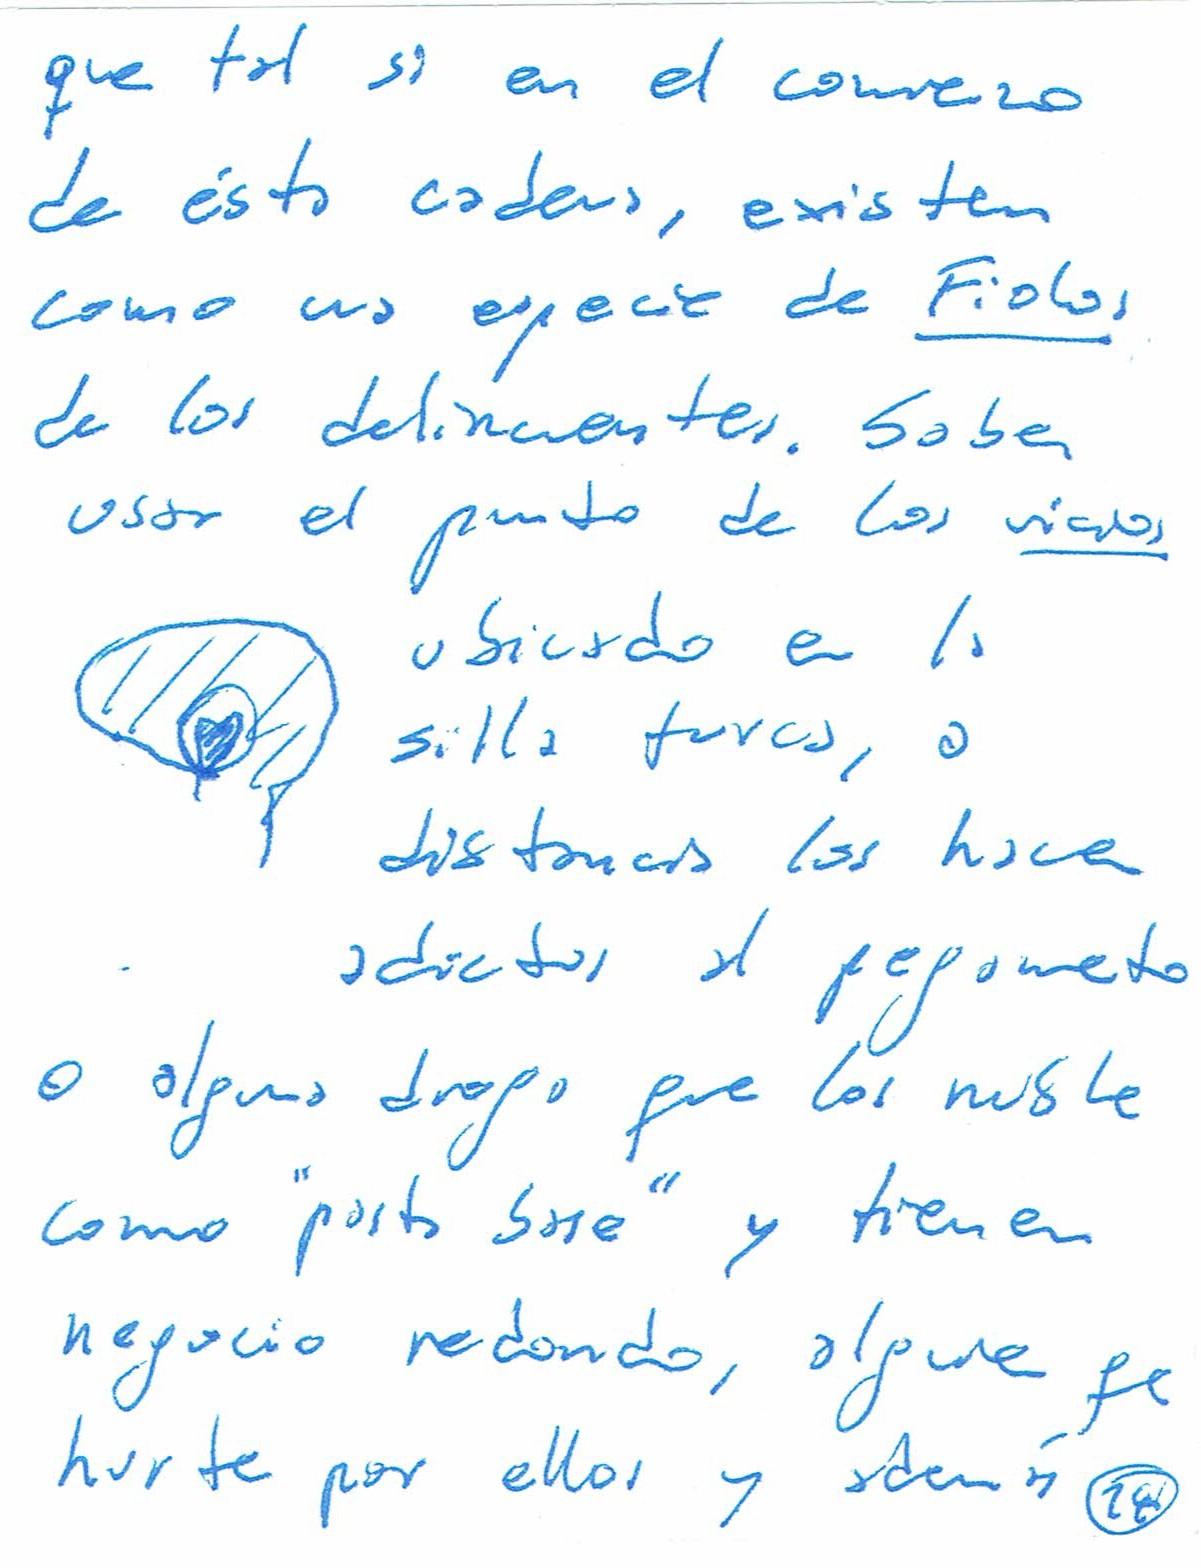 que tal si en el comienzo
de ésta cadena, existen
como una especie de Fiolos
de los delincuentes. Saben
usar el punto de los vicios
ubicado en la
silla turca, a
distancia los hacen
adictos al pegameto
o alguna droga que los nuble
como "pasta base" y tienen
negocio redondo, alguien qe
hurte por ellos y además